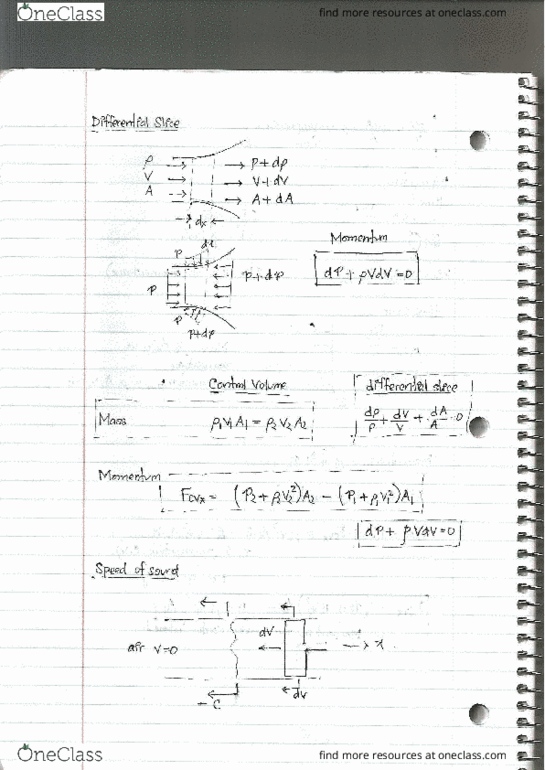 OneClass
find more resources at oneclass.com
Differential Slice
ρ → → ρ+dρ
V → → V+dV
A → → A+dA
dx
dl
P
P P+dP
P
P+dP
Momentum
dP + ρVdV = 0
Control Volume
differential slice
Mass ρ₁V₁A₁ = ρ₂V₂A₂
dρ/ρ + dV/V + dA/A = 0
Momentum
Fcvx = (P₂+ρ₂V₂²)A₂ − (P₁+ρ₁V₁²)A₁
dP + ρVdV = 0
Speed of sound
air V=0 dV → x
− C dV
OneClass
find more resources at oneclass.com